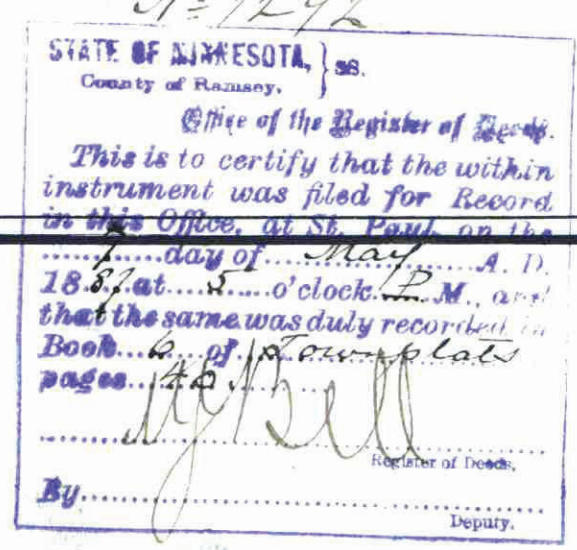 STATE OF MINNESOTA, } ss.
County of Ramsey.
Office of the Register of Deeds.
This is to certify that the within
instrument was filed for Record
in this Office, at St. Paul, on the
......7....day of....May..........A. D.
18.87.at....5.....o'clock..P..M., and
that the same was duly recorded in
Book...6...of..Townplats
pages...42...
Bell
Register of Deeds,
By
Deputy.